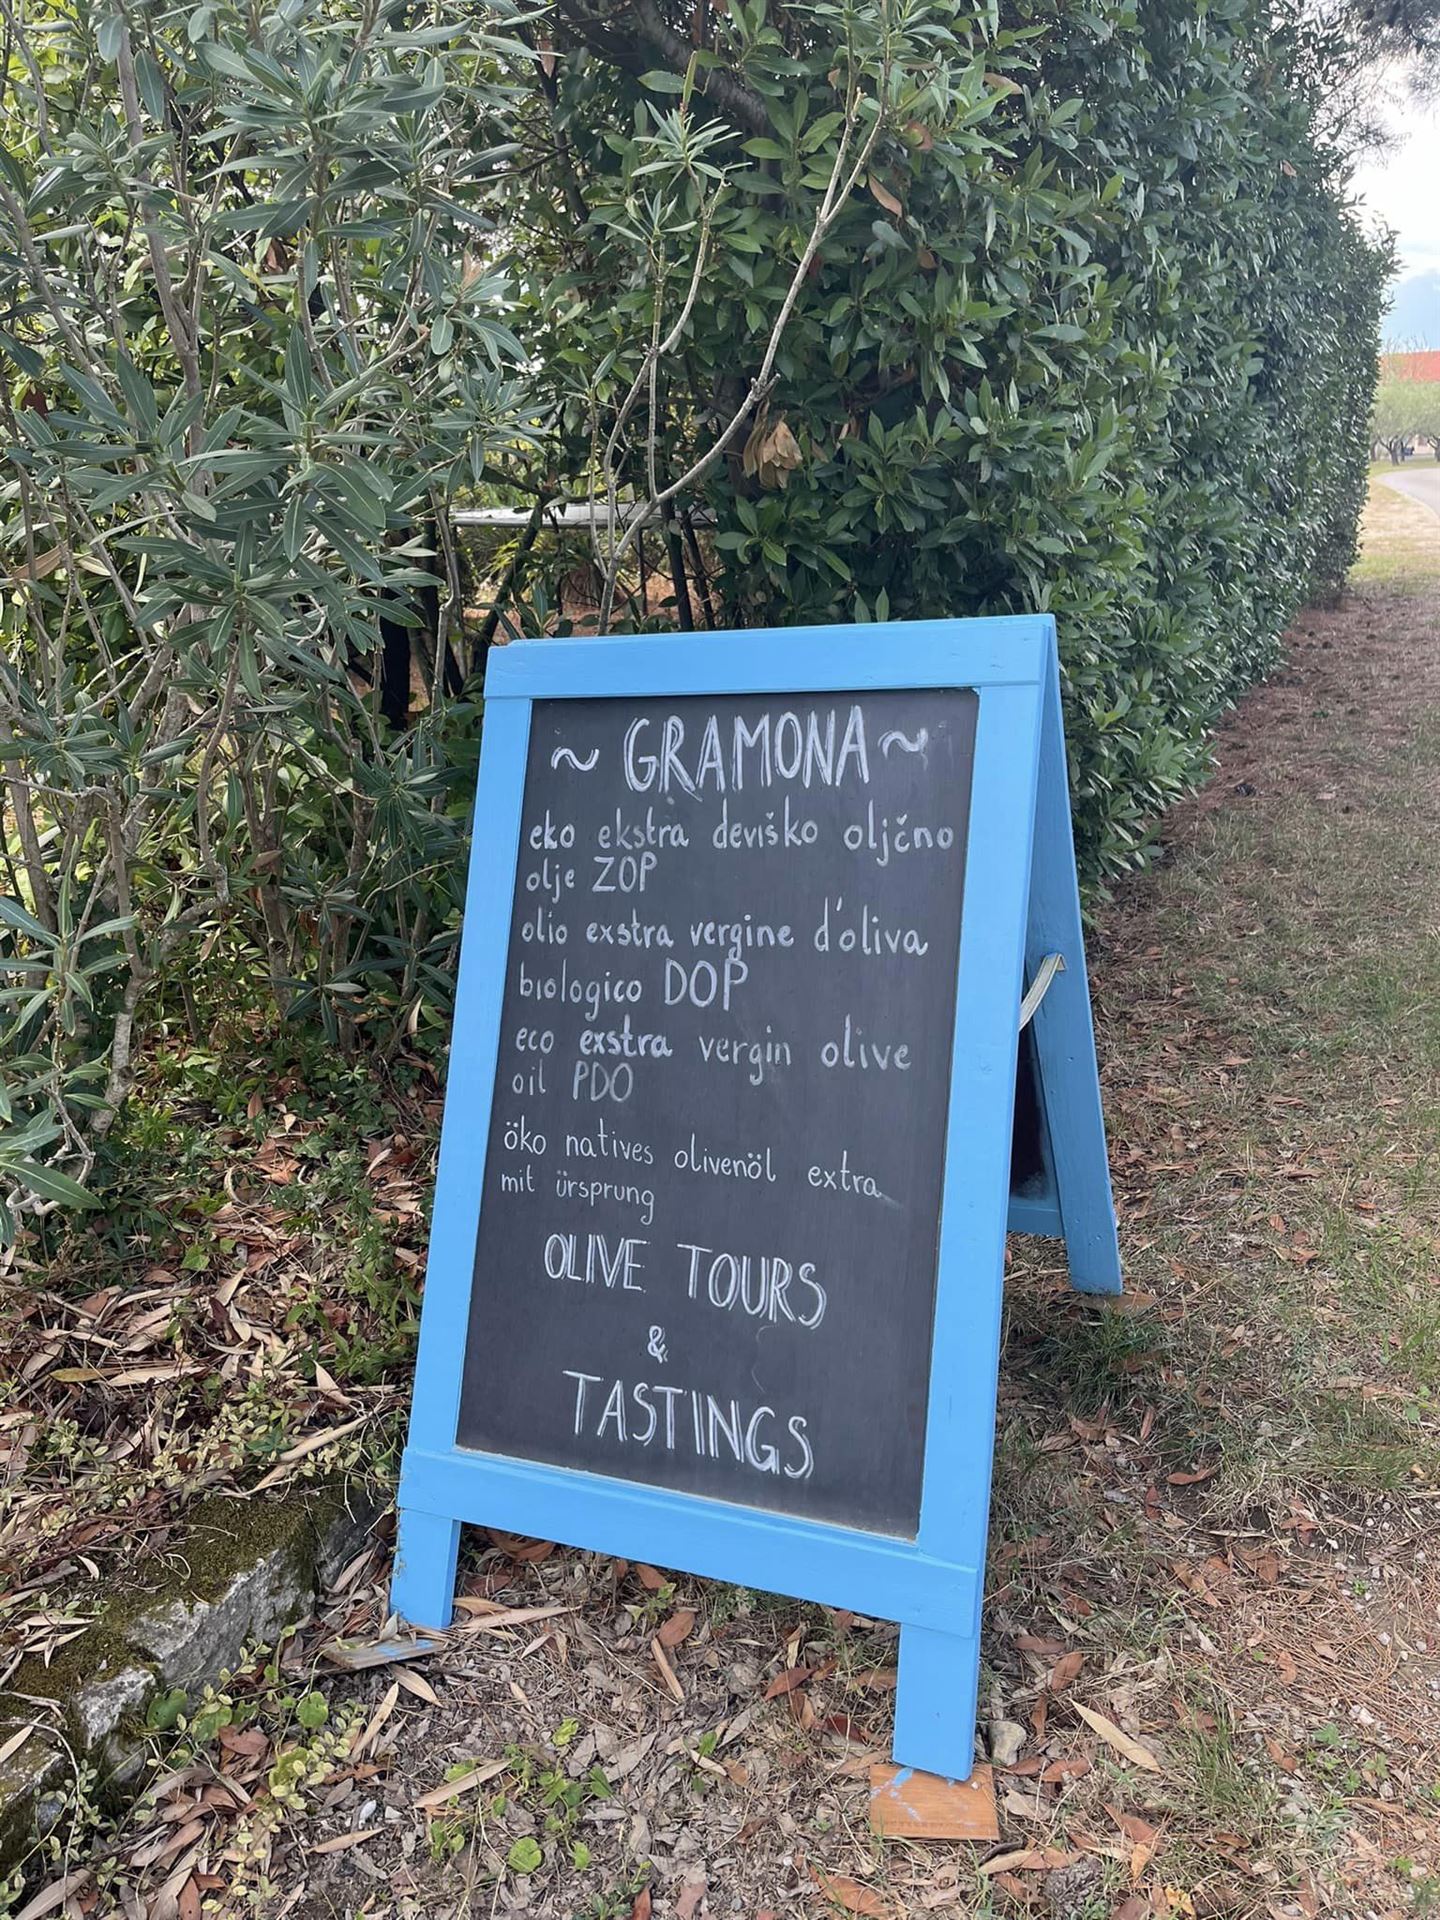 ~ GRAMONA ~
eko ekstra deviško oljčno
olje ZOP
olio exstra vergine d'oliva
biologico DOP
eco exstra vergin olive
oil PDO
öko natives olivenöl extra
mit ürsprung
OLIVE TOURS
&
TASTINGS